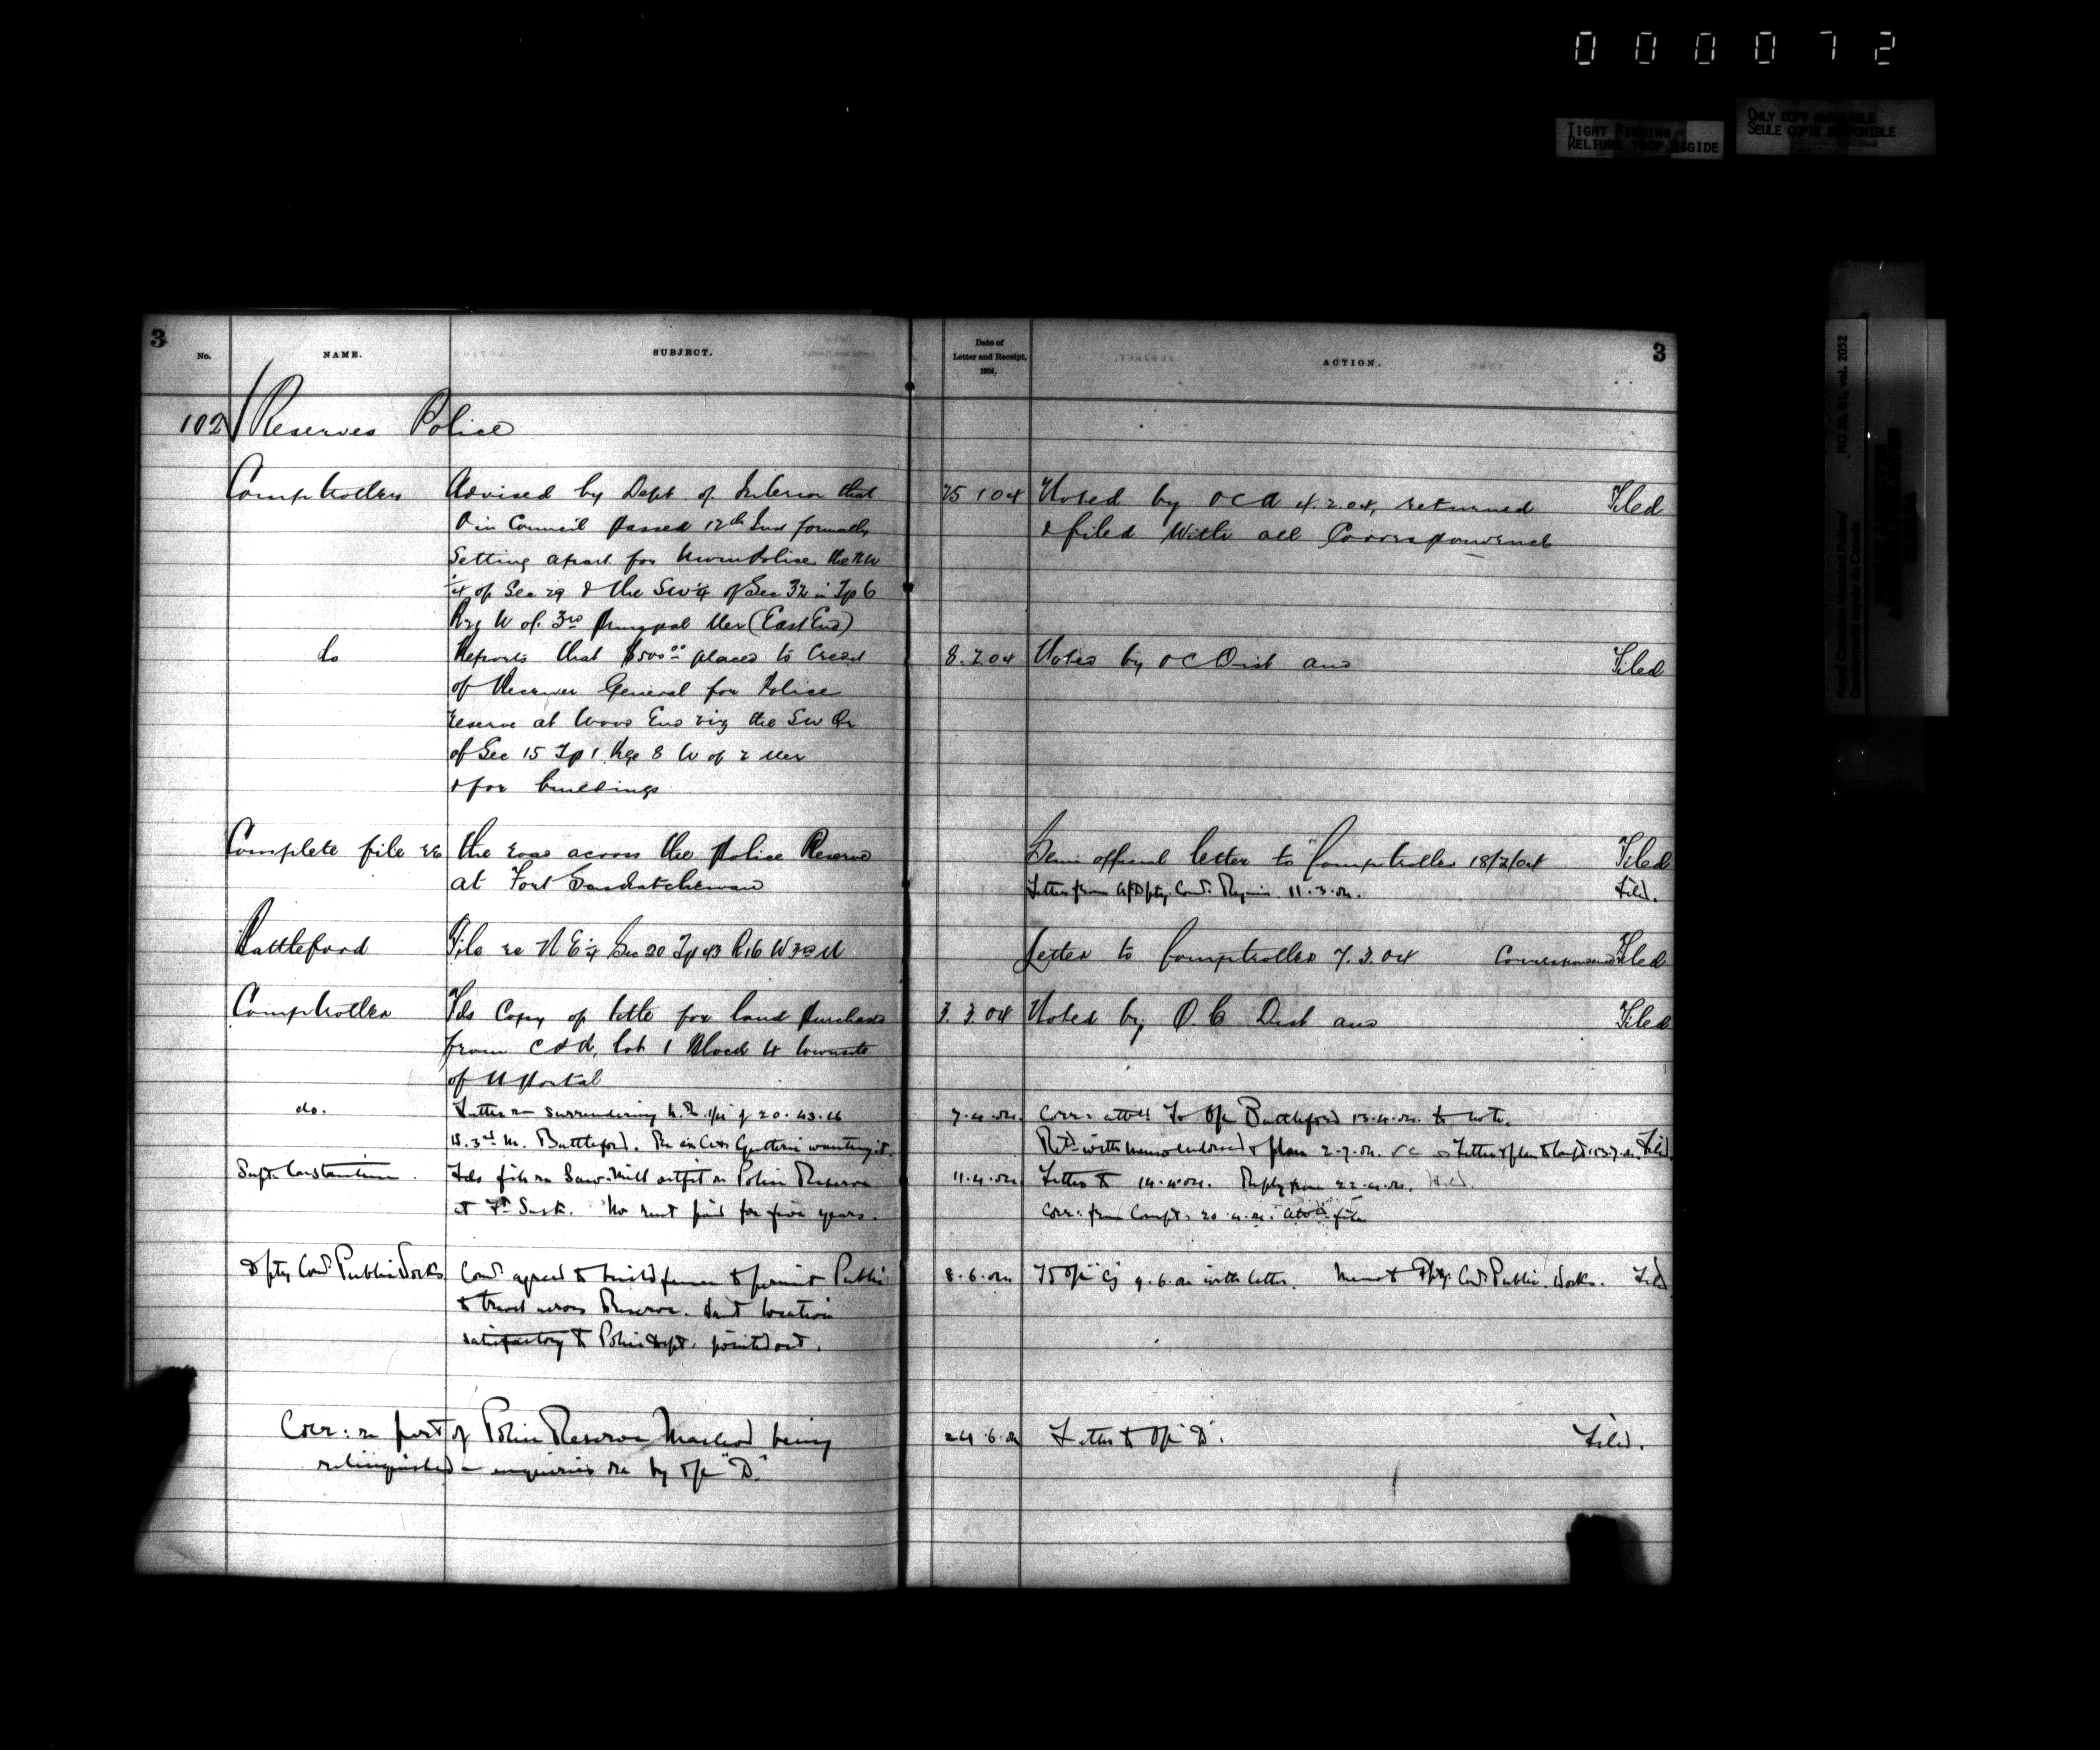 0 0 0 0 7 2
TIGHT BINDING
RELIURE TROP RIGIDE
ONLY COPY AVAILABLE
SEULE COPIE DISPONIBLE
RG 18, B1, vol. 2052
Royal Canadian Mounted Police/
Gendarmerie royale du Canada
3
No.
NAME.
SUBJECT.
Date of
Letter and Receipt,
1904.
ACTION.
3
102 Reserves Police
Comptroller Advised by Dept of Interior that 25 1 04 Noted by OC 4.2.04, returned Filed
O in Council passed 12th formally & filed with all Correspondence
Setting apart for NWM Police the NW
¼ of Sec 29 & the SW ¼ of Sec 32 in Tp 6
W of 3rd Principal Mer (East End)
do Reports that $500 00 placed to Credit 8.2.04 Noted by OC Dist and Filed
of Receiver General for Police
reserve at Wood End viz the SW Qr
of Sec 15 Tp 1 Rge 8 W of 2 Mer
& for buildings
Complete file re the road across the Police Reserve Semi official letter to Comptroller 18/2/04 Filed
at Fort Saskatchewan Letter from Dpty. Com. Regina 11.3.04. Filed.
Battleford File re N E ¼ Sec 20 Tp 43 R 16 W 3rd M Letter to Comptroller 7.3.04 Filed
Comptroller Fds Copy of title for land purchased 3.3.04 Noted by O.C Dist and Filed
from lot 1 Block 4 townsite
of N Portal
do. Letter re surrendering N.E. 1/4 of 20.43.16 7.4.04 Corr: attd to OC Battleford 13.4.04. to note.
W. 3rd M. Battleford. wanting it. Retd with memo endorsed & plan 2.7.04. Letter & plan to Compt: 13.7.04. Filed.
Supt. Constantine. Fds file re Saw-Mill outfit on Police Reserve 11.4.04 Letter to 14.4.04. Reply from 22.4.04. Filed.
at Ft Sask. No rent paid for five years. Corr: from Compt: 20.4.04. attd file
Dpty Comr Public Works Comr agreed to build fence & permit Public 8.6.04 To OC "G" 9.6.04 with letter. Memo to Dpty. Comr Public Works. Filed
to travel across Reserve. location
satisfactory to Police Dept. pointed out.
Corr: re part of Police Reserve Macleod being 24.6.04 Letter to OC "D". Filed.
relinquished – enquiries re by OC "D."